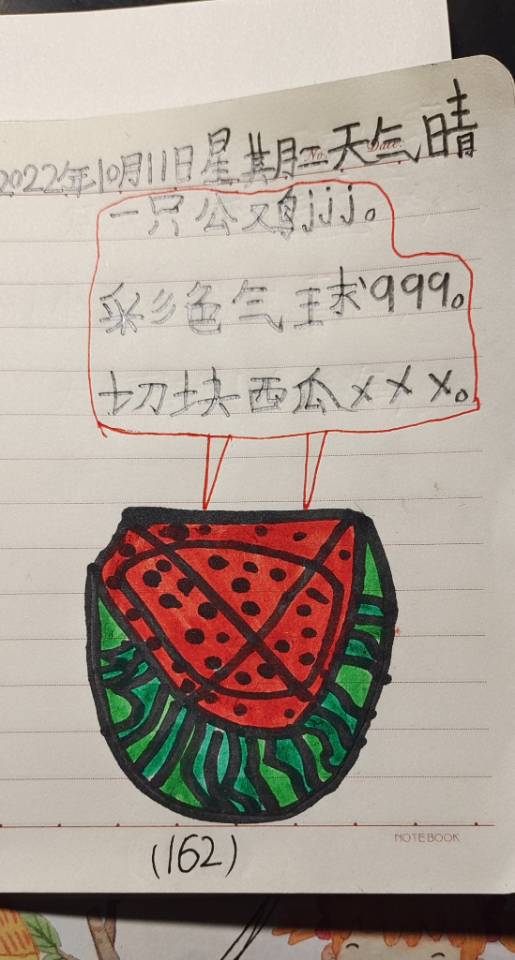 2022年10月11日星期二天气晴
No.
Date.
一只公鸡jjj。
彩色气球qqq。
切块西瓜xxx。
NOTEBOOK
(162)